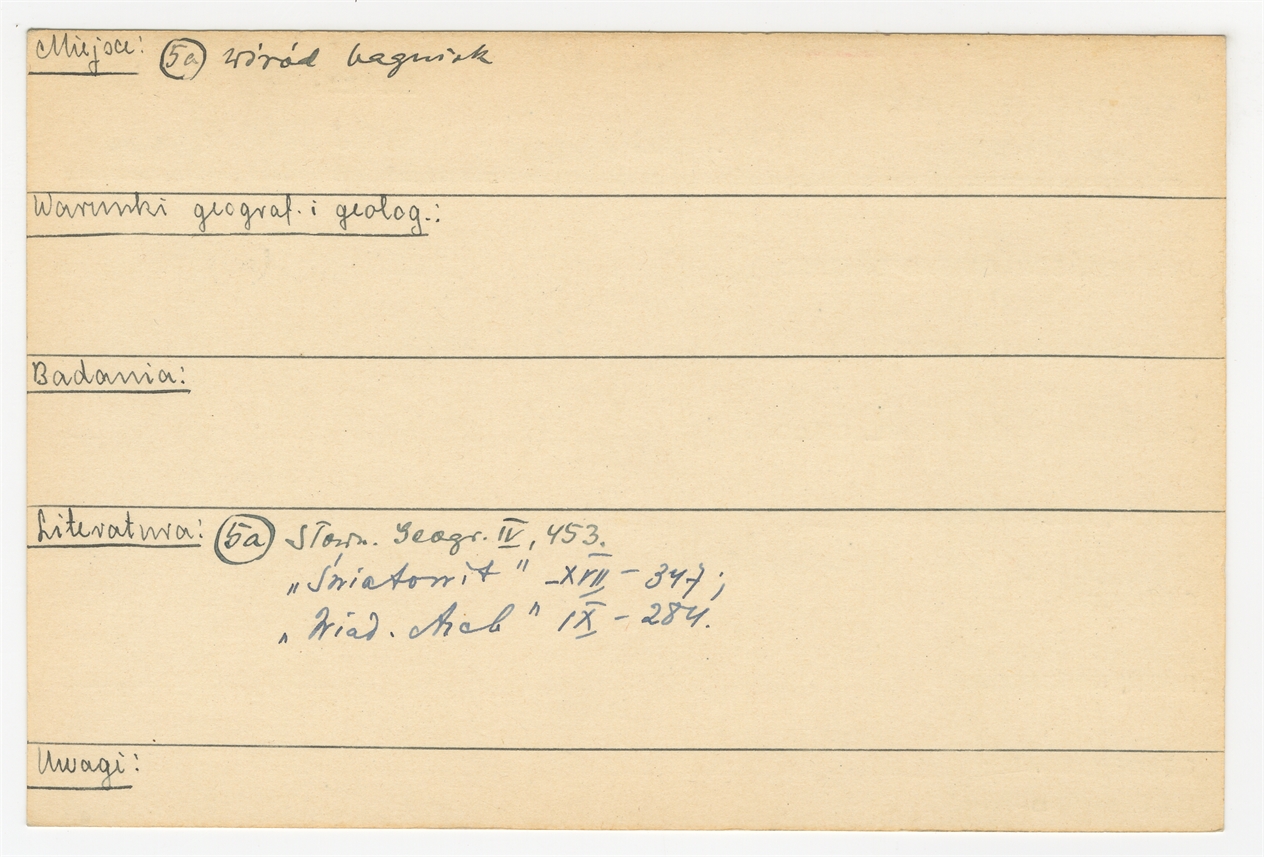 Miejsce: 5a wśród bagnisk
Warunki geograf. i geolog.:
Badania:
Literatura: 5a Słown. Geogr. IV, 453.
„Światowit" XVII – 347;
„Wiad. Arch" IX – 284.
Uwagi: